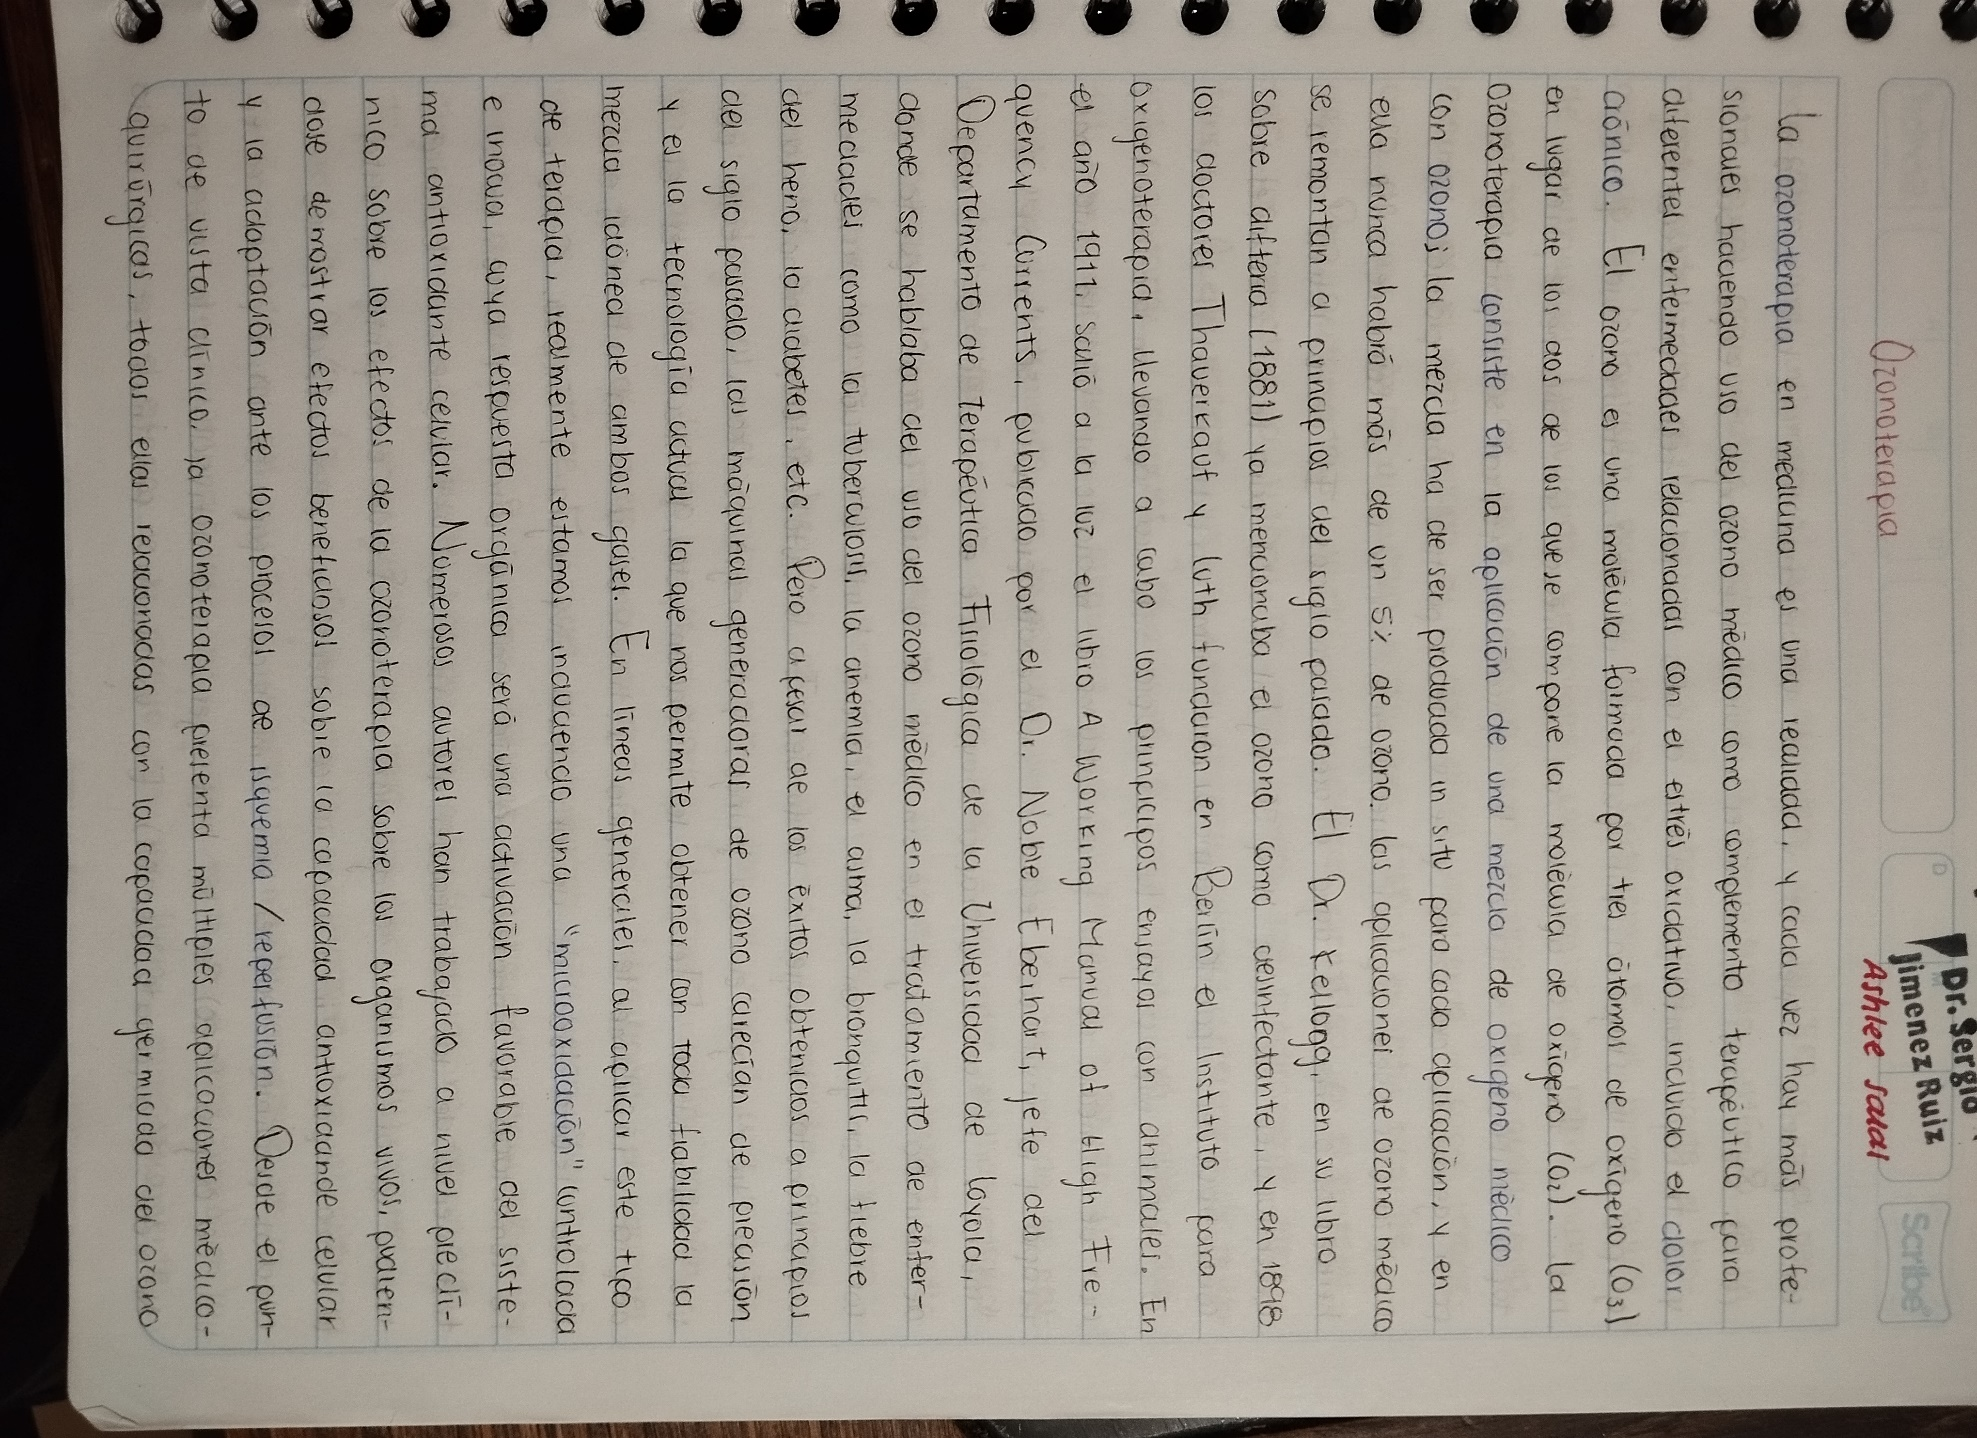 Dr. Sergio
Jimenez Ruiz
Ashlee Salas
Scribe
D
Ozonoterapia
La ozonoterapia en medicina es una realidad, y cada vez hay más profe-
sionales haciendo uso del ozono médico como complemento terapéutico para
diferentes enfermedades relacionadas con el estrés oxidativo, incluido el dolor
crónico. El ozono es una molécula formada por tres átomos de oxígeno (O3)
en lugar de los dos de los que se compone la molécula de oxígeno (O2). La
Ozonoterapia consiste en la aplicación de una mezcla de oxigeno médico
con ozono; la mezcla ha de ser producida in situ para cada aplicación, y en
ella nunca habrá más de un 5% de ozono. Las aplicaciones de ozono médico
se remontan a principios del siglo pasado. El Dr. Kellogg, en su libro
sobre difteria (1881) ya mencionaba el ozono como desinfectante, y en 1898
los doctores Thauerkauf y Luth fundaron en Berlín el Instituto para
oxigenoterapia, llevando a cabo los principos ensayos con animales. En
el año 1911, salió a la luz el libro A Working Manual of High Fre-
quency Currents, publicado por el Dr. Noble Eberhart, jefe del
Departamento de Terapéutica Fisiológica de la Universidad de Loyola,
donde se hablaba del uso del ozono médico en el tratamiento de enfer-
medades como la tuberculosis, la anemia, el asma, la bronquitis, la fiebre
del heno, la diabetes, etc. Pero a pesar de los éxitos obtenidos a principios
del siglo pasado, las máquinas generadoras de ozono carecían de precisión
y es la tecnología actual la que nos permite obtener con toda fiabilidad la
mezcla idónea de ambos gases. En líneas generales, al aplicar este tipo
de terapia, realmente estamos induciendo una "microoxidación" controlada
e inocua, cuya respuesta orgánica será una activación favorable del siste-
ma antioxidante celular. Numerosos autores han trabajado a nivel preclí-
nico sobre los efectos de la ozonoterapia sobre los organismos vivos, pudien-
dose demostrar efectos beneficiosos sobre la capacidad antioxidande celular
y la adaptación ante los procesos de isquemia / reperfusión. Desde el pun-
to de vista clínico, ja ozonoterapia presenta múltiples aplicaciones médico-
quirúrgicas, todas ellas relacionadas con la capacidad germicida del ozono